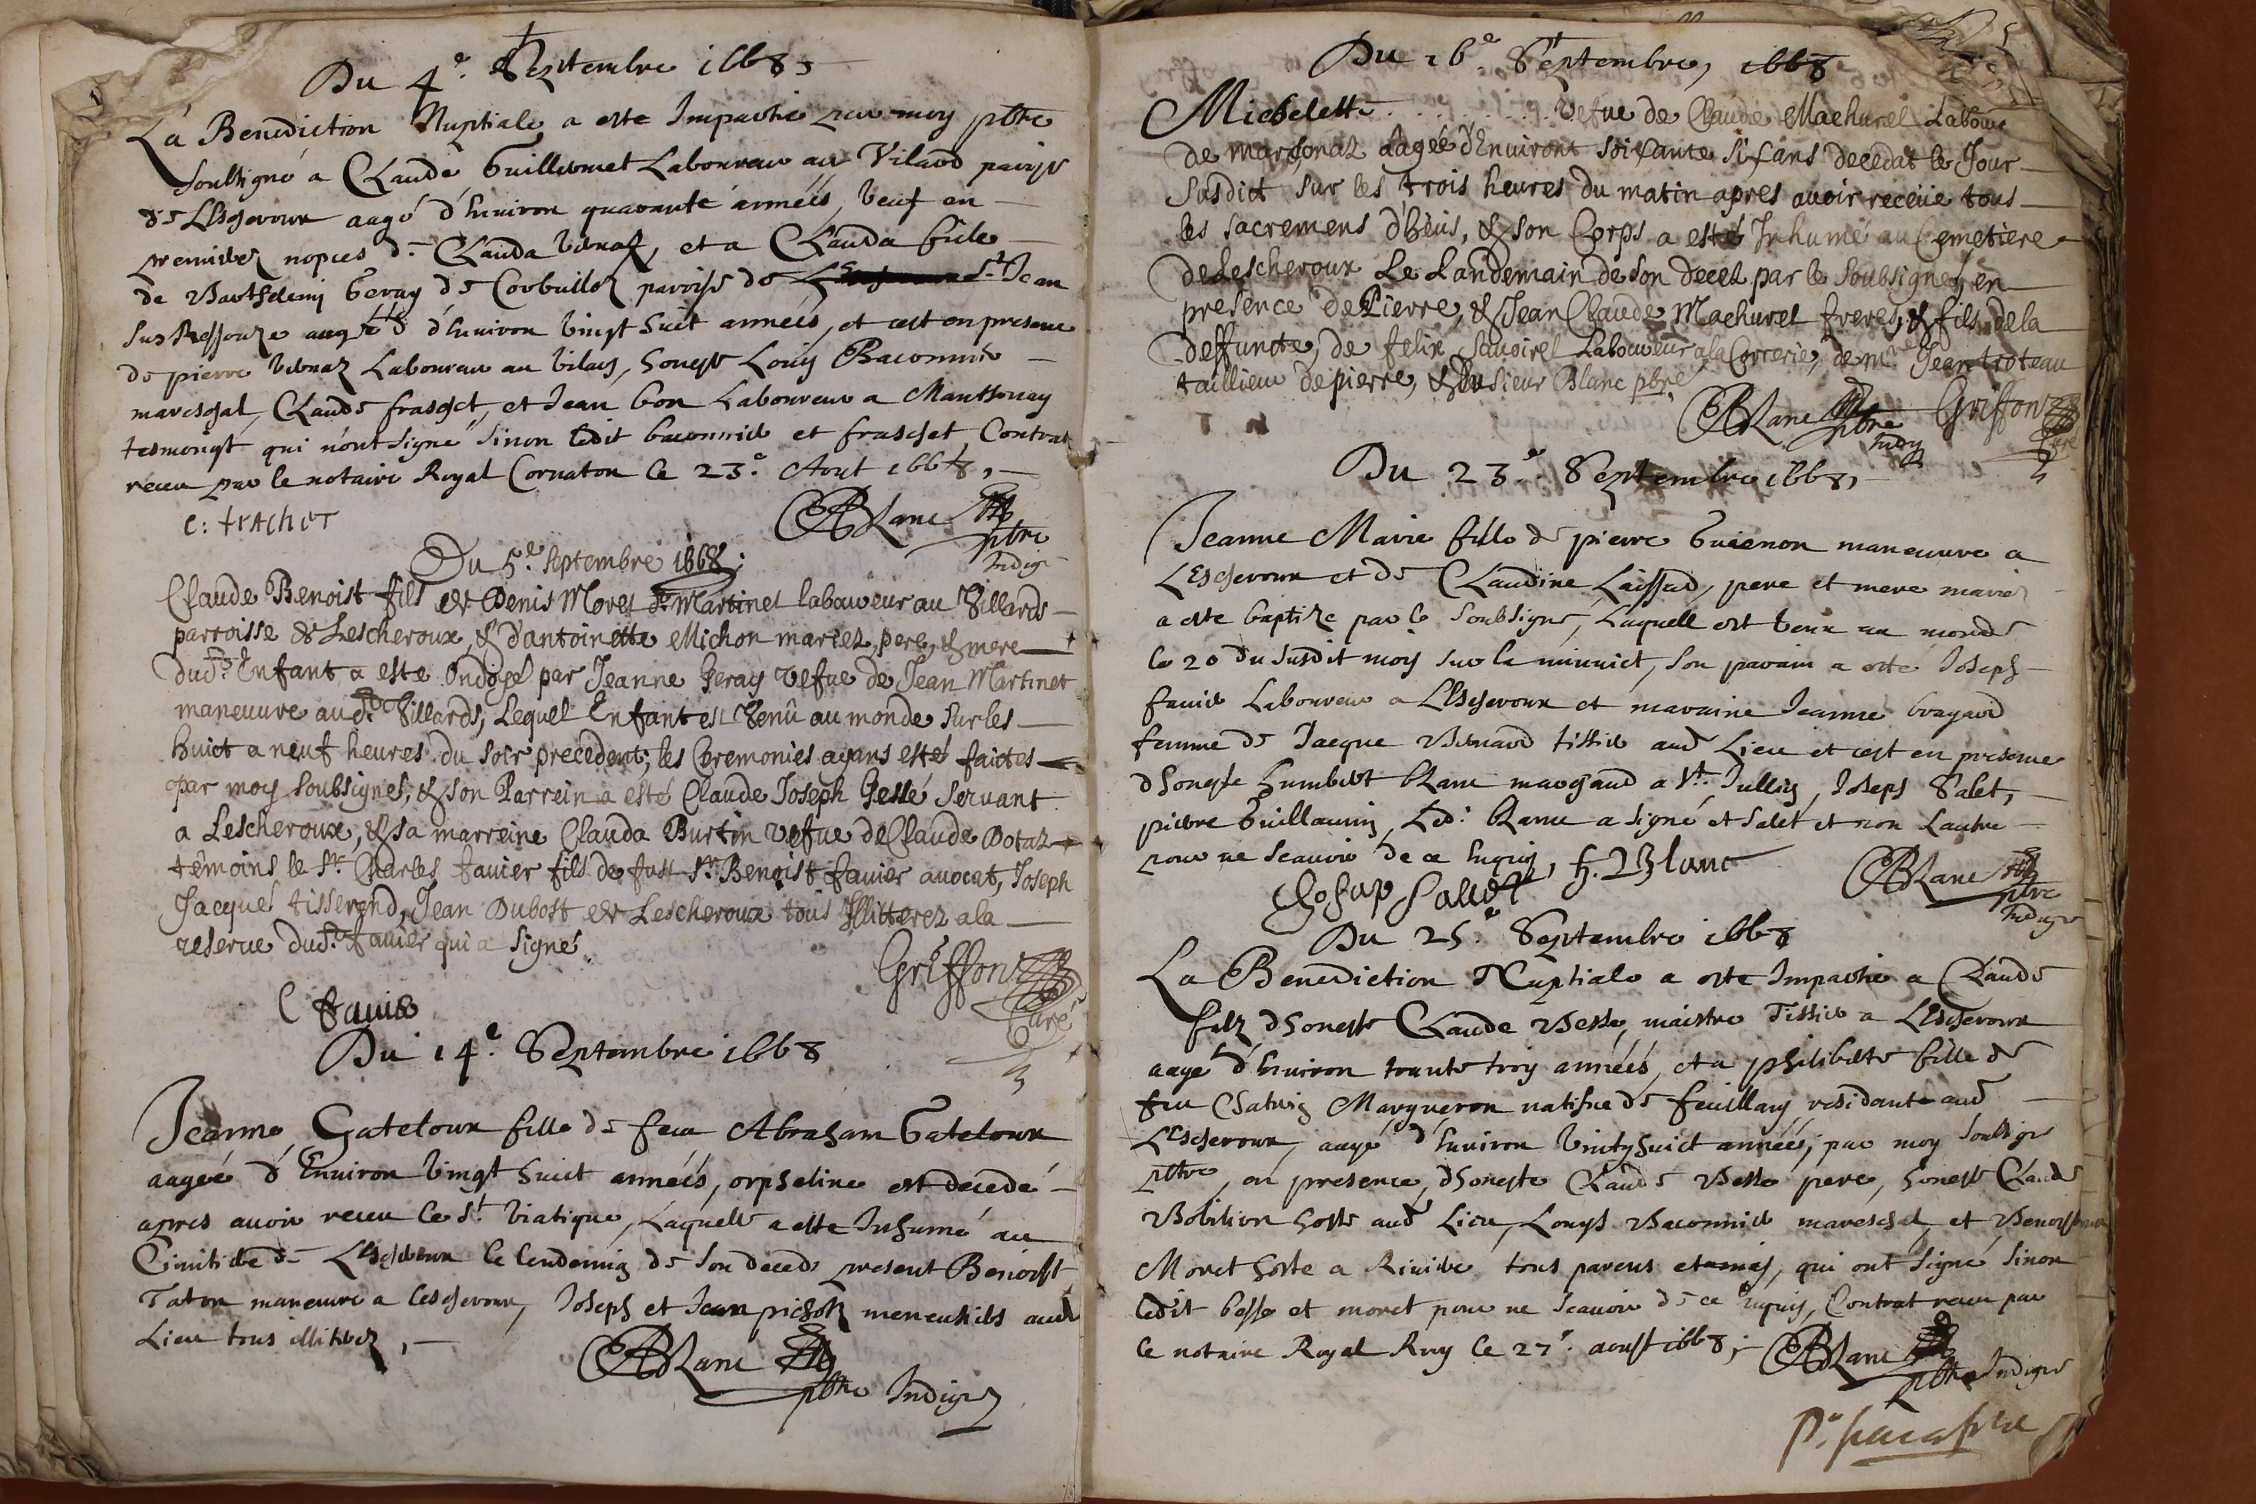 Du 4e. Septembre 1668,
La Benediction Nuptiale a este Impartie par moy pbre
soubsigné a Claude Guillermet Laboureur au Vilard paroisse
de L'Escheroux aagé d'Environ quarante années, veuf en
premieres nopces de Clauda, et a Clauda fille
de Barthelemy Geray de Corbuillo paroisse de St. Jean
sur Ressouze aagée d'Environ vingt huit années, et cest en presence
de pierre Laboureur au vilars, honeste Louis Baconnier
mareschal, Claude fraschet, et Jean bon Laboureur a Manthonay
tesmoingt qui n'ont signé sinon ledit baconnier et fraschet, Contrat
receu par le notaire Royal Cornaton le 23e. Aout 1668,
C: frachet
CBlanc pbre
Indigne
Du 5e. Septembre 1668;
Claude Benoist fils de Denis Morel dt Martinet laboureur au Villards
parroisse de Lescheroux, & d'antoinette Michon mariez, pere, & mere
dud. Enfant a este Ondoyé par Jeanne Geray vefue de Jean Martinet
maneuure aud. Villards, Lequel Enfant est Venû au monde sur les
huict a neuf heures du soir precedent; les Ceremonies ayans esté faictes
par moy soubsignes, & son Parrein a esté Claude Joseph Gessé servant
a Lescheroux, & sa marreine Clauda Burtin vefue de Claude Dotaz
témoins le Sr. Charles favier fils de fust Sr. Benoist favier avocat, Joseph
Jacques tisserend, Jean Dubost de Lescheroux tous Illitterez a la
reserve dud. favier qui a signé.
Griffon
Curé
C favier
Du 14e. Septembre 1668
Jeanne Gateloux fille de feu Abraham Gateloux
aageé d'Environ vingt huict années, orpheline est decedé
apres avoir receu le St. viatique, Laquelle a este Inhumé au
Cimitiere de L'Escheroux le lendemig de son deceds present Benoist
Taton maneuvre a Lescheroux, Joseph et Jean pichon aud
Lieu tous illiterez,
CBlanc
pbre Indigne
Du 16e. Septembre, 1668
Michelette . . . . . . Vefue de Claude Machurel Laboue
de marsonaz aagée d'Environt soixante six ans decedat le Jour
susdict sur les trois heures du matin apres avoir receüe tous
les sacremens d'Iceus, & son Corps a esté Inhumé au Cemetiere
de Lescheroux Le Landemain de son decez par le soubsignez, en
presence de Pierre, & Jean Claude Machurel freres, & fils de la
deffuncte, de felix Savoirel Laboureur a la Correrie, de mre Jean troteau
taillieu de pierre, & du sieur Blanc pbre
CBlanc pbre
Indigne
Griffon
Curé
Du 23e. Septembre 1668,
Jeanne Marie fille de pierre Guienon maneuvre a
L'Escheroux et de Claudine Laissard, pere et mere mariés
a este baptizé par le soubsigné, Laquelle est venu au monde
le 20 du susdit moys sur la minuict, son parain a este Joseph
favier Laboureur a L'Escheroux et maraine Jeanne brayard
femme de Jacque Bernard tissier aud Lieu et cest en presence
d'honeste humbert blanc marchand a St. Jullig, Joseph Salet,
pierre Guillaumig, Led: blanc a signé et Salet et non Lautre
pour ne scavoir de ce Enquis, h. Blanc
Chosap Sallet
CBlanc
pbre
Indigne
Du 25e. Septembre 1668
La Benediction Nuptiale a este Impartie a Claude
filz d'honeste Claude Besse, maistre Tissier a L'Escheroux
aagé d'Environ trante troy années, et a philiberte fille de
feu Margueron natifue de feuillary residante aud
L'Escheroux, aagé d'Environ vintyhuict années, par moy soubsigné
pbtre, en presence, d'honeste Claude Besse pere, honeste Claude
hoste aud Lieu, Louys Baconnier mareschal, et Benoist
Moret hoste a Riviere tous parens et amis, qui ont signé sinon
ledit besse et moret pour ne scavoir de ce Enquis, Contrat receu par
le notaire Royal Ruy le 27e. aoust 1668,
CBlanc
pbtre Indigne